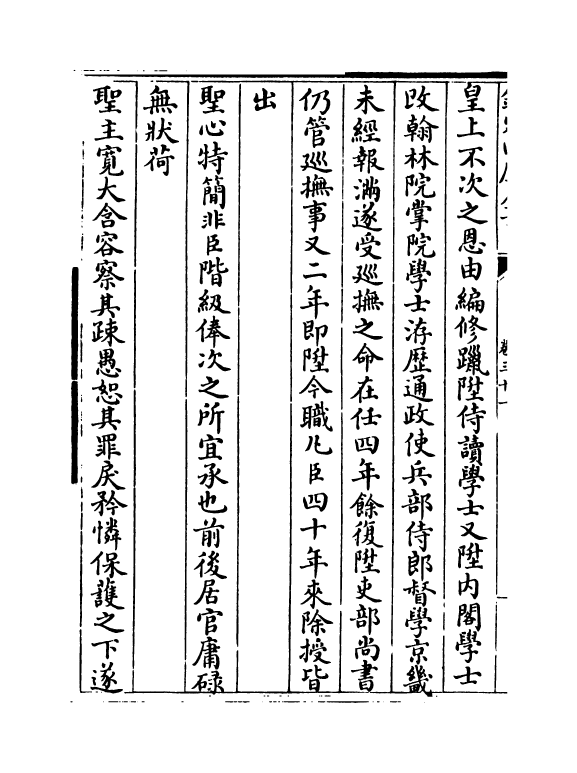 皇上不次之恩由編修躐陞侍讀學士又陞内閣學士
改翰林院掌院學士洊歴通政使兵部侍郎督學京畿
未經報滿遂受廵撫之命在任四年餘復陞吏部尚書
仍管廵撫事又二年即陞今職凡臣四十年來除授皆
出
聖心特簡非臣階級俸次之所宜承也前後居官庸碌
無狀荷
聖主寛大含容察其疎愚恕其罪戾矜憐保護之下遂
卷三十一